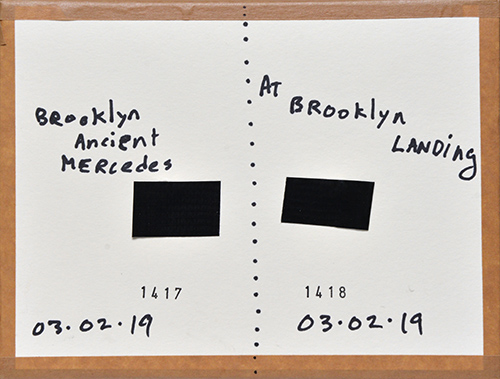 Brooklyn
Ancient
Mercedes
1417
03.02.19
At
Brooklyn
Landing
1418
03.02.19